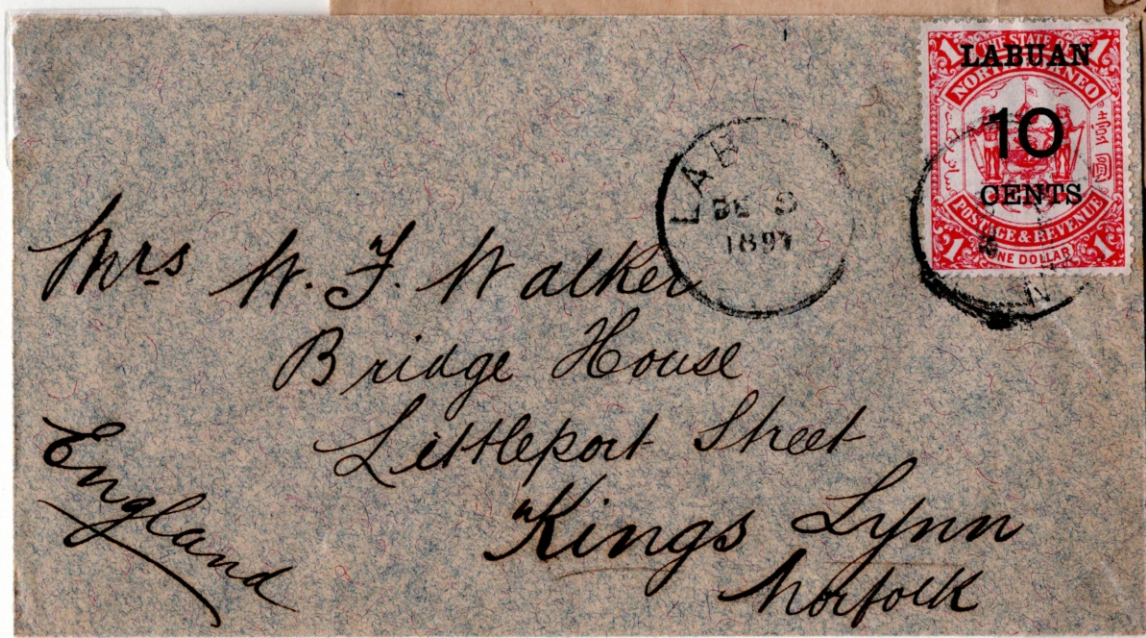 THE STATE OF
1 LABUAN 1
NORTH BORNEO
10
壹圓
CENTS
POSTAGE & REVENUE
1 ONE DOLLAR 1
LAB
DE 9
1897
Mrs W. F. Walker
Bridge House
Littleport Street
Kings Lynn
Norfolk
England